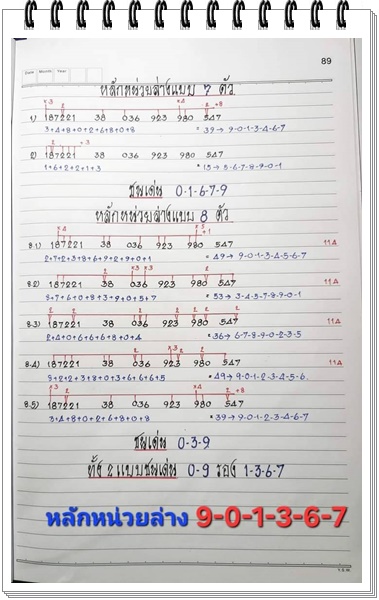 89
Date Month Year
หลักหน่วยล่างแบบ 7 ตัว
×3 2 2 +8
1) 187221 38 036 923 980 547
3+4+8+0+2+6+8+0+8 = 39 → 9-0-1-3-4-6-7
2 -3
2) 187221 38 036 923 980 547
1+6+2+2+1+3 = 15 → 5-6-7-8-9-0-1
ชนเด่น 0-1-6-7-9
หลักหน่วยล่างแบบ 8 ตัว
×4 ×5 +1
8.1) 187221 38 036 923 980 547 11A
2+7+2+3+8+6+9+2+9+0+1 = 49 → 9-0-1-3-4-5-6-7
2 ×3 ×3 2
8.2) 187221 38 036 923 980 547
8+7+6+0+8+3+9+0+5+7 = 53 → 3-4-5-7-8-9-0-1
2 2 2 2 2
8.3) 187221 38 036 923 980 547 11A
2+4+0+6+6+6+8+0+4 = 36 → 6-7-8-9-0-2-3-5
2 ×3 2 2
8.4) 187221 38 036 923 980 547 11A
8+2+2+3+8+0+3+6+6+6+5 = 49 → 9-0-1-2-3-4-5-6
×3 2 ×4 2 +8
8.5) 187221 38 036 923 980 547
3+4+8+0+2+6+8+0+8 = 39 → 9-0-1-2-3-4-6-7
ชนเด่น 0-3-9
ทั้ง 2 แบบชนเด่น 0-9 รอง 1-3-6-7
หลักหน่วยล่าง 9-0-1-3-6-7